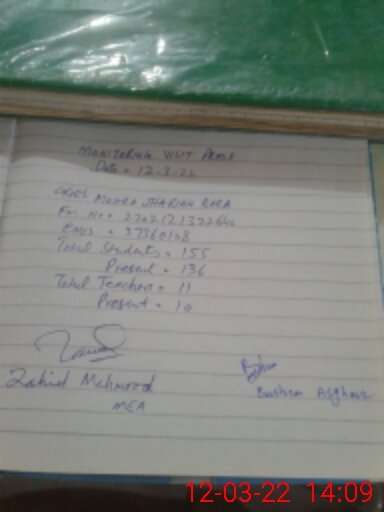 MONITORING VISIT PMMF
Date = 12-3-22
GGES MOHRA JHARIAN BARA
EMIS = 37360148
Total Students = 155
Present = 136
Total Teachers = 11
Present = 10
Zahid Mehmood
MEA
Bushra Asghar
12-03-22 14:09